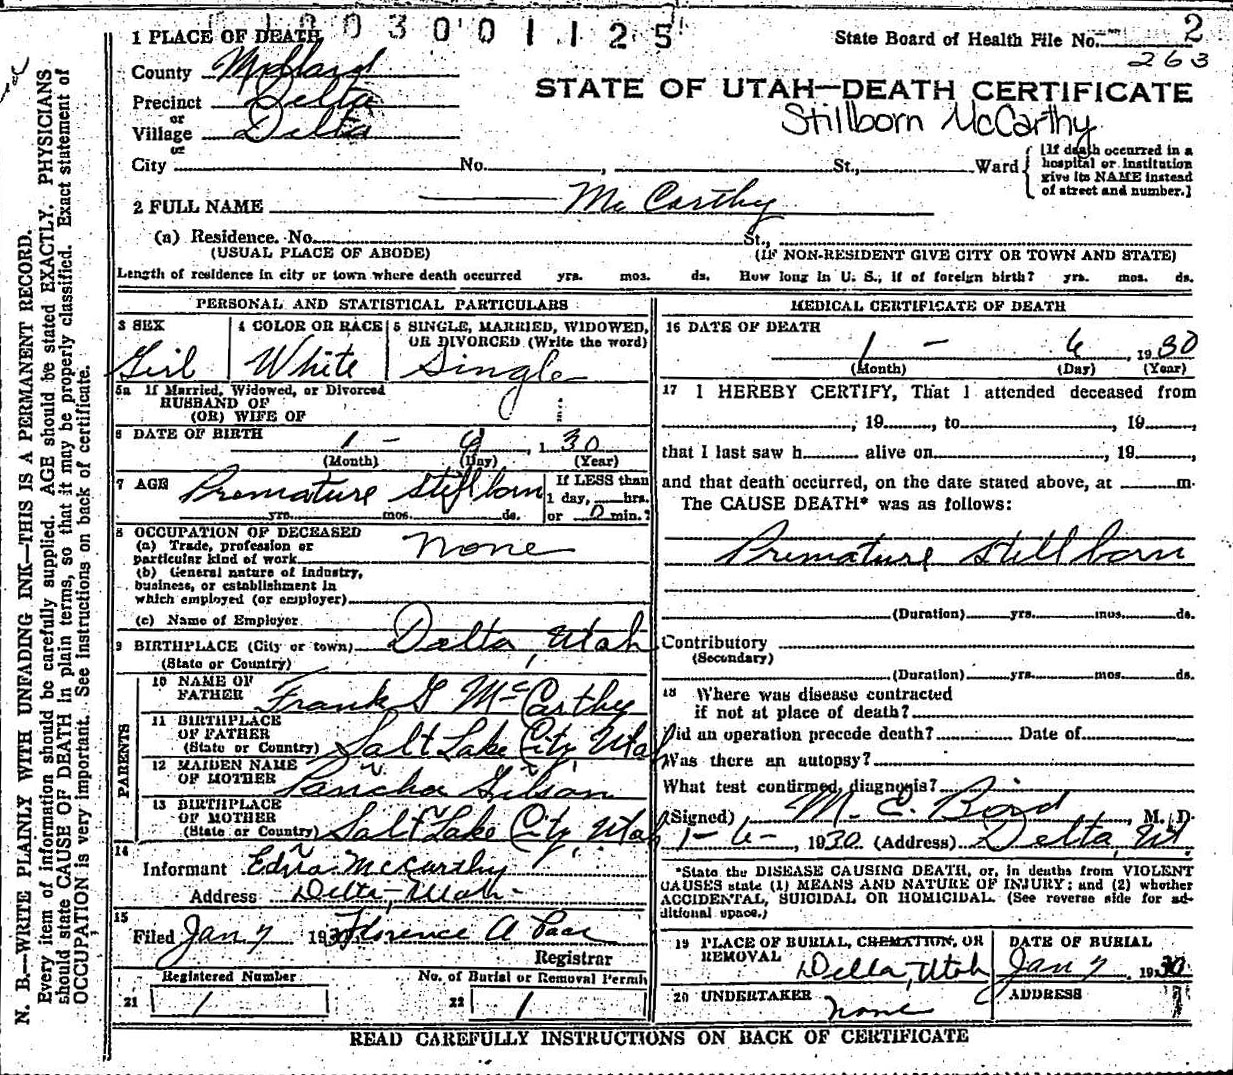 0 0 3 0 0 1 1 2 5
1 PLACE OF DEATH
State Board of Health File No. 2
263
County Millard
STATE OF UTAH—DEATH CERTIFICATE
Precinct Delta
or
Stillborn McCarthy
Village Delta
or
City No. , St., Ward
[If death occurred in a hospital or institution give its NAME instead of street and number.]
2 FULL NAME McCarthy
(a) Residence. No. St.,
(USUAL PLACE OF ABODE) (IF NON-RESIDENT GIVE CITY OR TOWN AND STATE)
Length of residence in city or town where death occurred yrs. mos. ds. How long in U. S., if of foreign birth? yrs. mos. ds.
PERSONAL AND STATISTICAL PARTICULARS
3 SEX Girl
4 COLOR OR RACE White
5 SINGLE, MARRIED, WIDOWED, OR DIVORCED (Write the word) Single
5a If Married, Widowed, or Divorced
HUSBAND OF
(OR) WIFE OF
6 DATE OF BIRTH 1 - 6, 1 30
(Month) (Day) (Year)
7 AGE Premature Stillborn
yrs. mos. ds.
If LESS than
1 day, hrs.
or 0 min.?
8 OCCUPATION OF DECEASED
(a) Trade, profession or
particular kind of work none
(b) General nature of industry,
business, or establishment in
which employed (or employer)
(c) Name of Employer
9 BIRTHPLACE (City or town) Delta, Utah
(State or Country)
PARENTS
10 NAME OF
FATHER Frank G McCarthy
11 BIRTHPLACE
OF FATHER
(State or Country) Salt Lake City, Utah
12 MAIDEN NAME
OF MOTHER Gilson
13 BIRTHPLACE
OF MOTHER
(State or Country) Salt Lake City, Utah
14
Informant Edna McCarthy
Address Delta, Utah
15
Filed Jan 7 1930 Florence A
Registrar
Registered Number
21 1
No. of Burial or Removal Permit
22 1
MEDICAL CERTIFICATE OF DEATH
16 DATE OF DEATH
1 - 6, 1930
(Month) (Day) (Year)
17 I HEREBY CERTIFY, That I attended deceased from
, 19 , to , 19 ,
that I last saw h alive on , 19 ,
and that death occurred, on the date stated above, at m.
The CAUSE DEATH* was as follows:
Premature stillborn
(Duration) yrs. mos. ds.
Contributory
(Secondary)
(Duration) yrs. mos. ds.
18 Where was disease contracted
if not at place of death?
Did an operation precede death? Date of
Was there an autopsy?
What test confirmed diagnosis?
(Signed) M. E. Bird, M. D.
1-6-, 1930. (Address) Delta, Ut.
*State the DISEASE CAUSING DEATH, or, in deaths from VIOLENT
CAUSES state (1) MEANS AND NATURE OF INJURY; and (2) whether
ACCIDENTAL, SUICIDAL OR HOMICIDAL. (See reverse side for ad-
ditional space.)
19 PLACE OF BURIAL, CREMATION, OR
REMOVAL Delta, Utah
DATE OF BURIAL
Jan 7, 1930
20 UNDERTAKER none
ADDRESS
READ CAREFULLY INSTRUCTIONS ON BACK OF CERTIFICATE
N. B.—WRITE PLAINLY WITH UNFADING INK—THIS IS A PERMANENT RECORD.
Every item of information should be carefully supplied. AGE should be stated EXACTLY. PHYSICIANS
should state CAUSE OF DEATH in plain terms, so that it may be properly classified. Exact statement of
OCCUPATION is very important. See instructions on back of certificate.